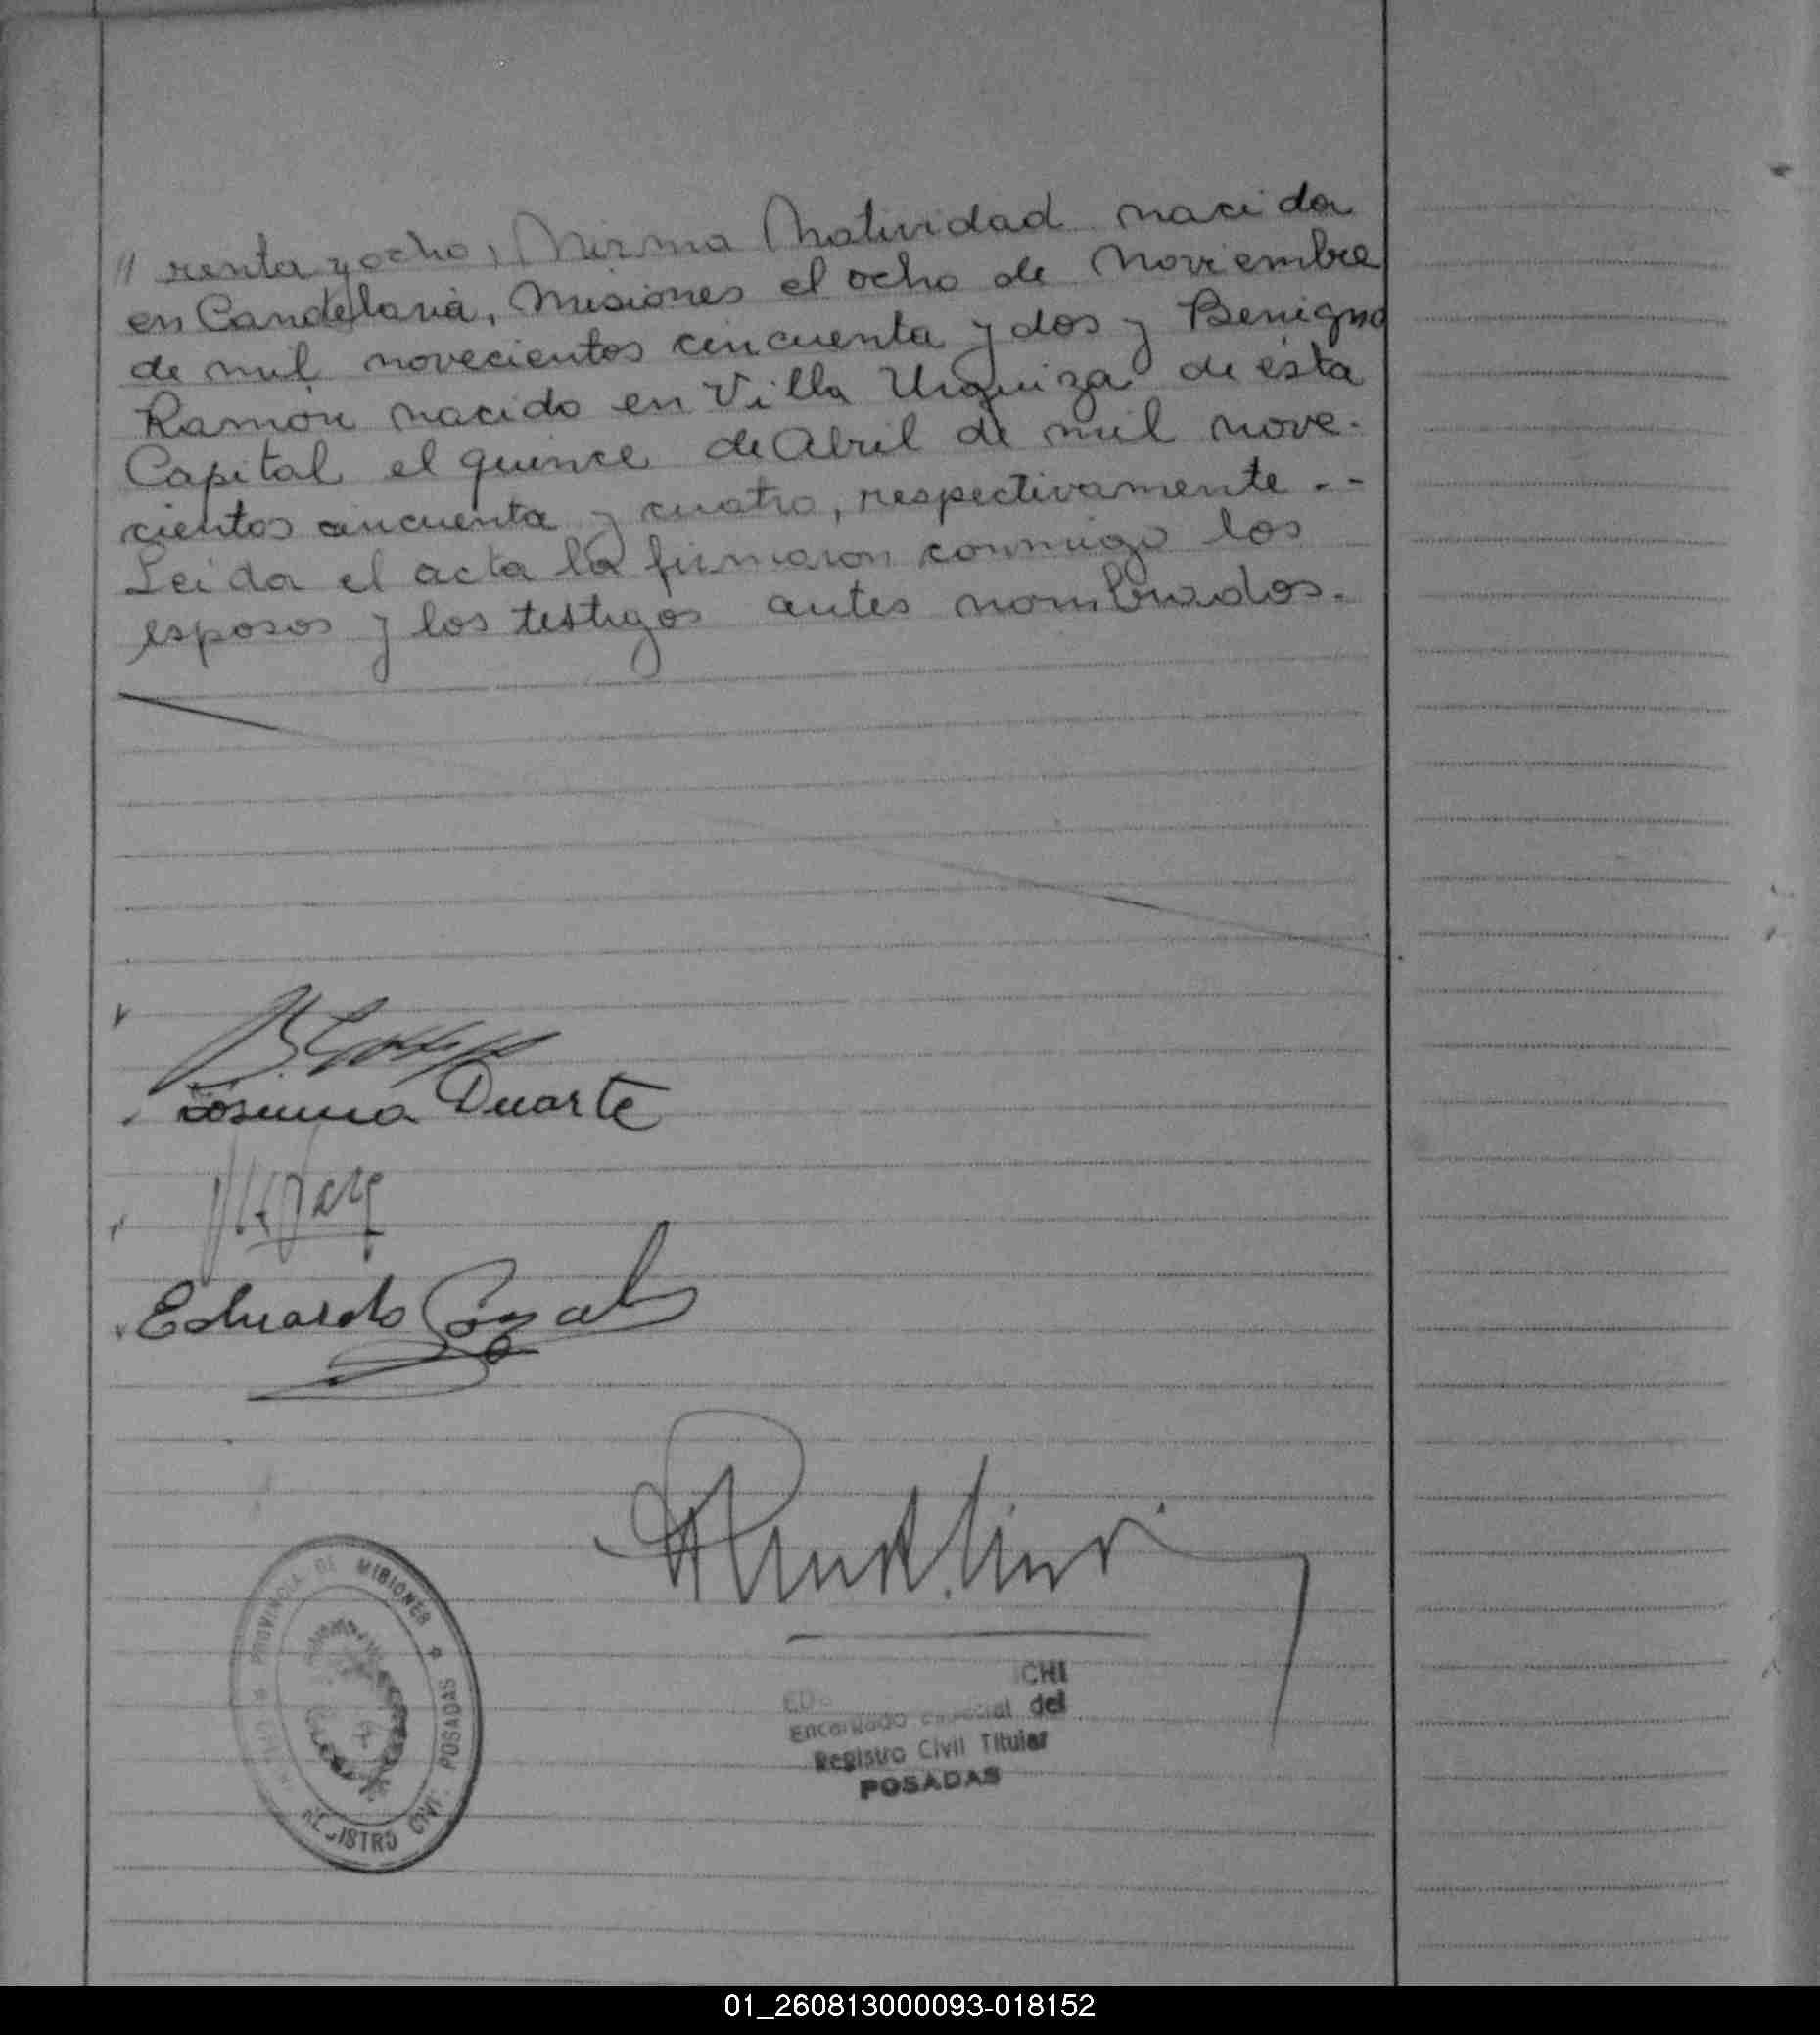 // renta y ocho, Mirma Natividad nacida
en Candelaria, Misiones el ocho de Noviembre
de mil novecientos cincuenta y dos y Benigno
Ramón nacido en Villa Urquiza de ésta
Capital el quince de Abril de mil nove-
cientos cincuenta y cuatro, respectivamente.-
Leida el acta la firmaron conmigo los
esposos y los testigos antes nombrados.
Duarte
Eduardo
PROVINCIA DE MISIONES
POSADAS
REGISTRO CIVIL
CHI
Encargado especial del
Registro Civil Titular
POSADAS
01_260813000093-018152